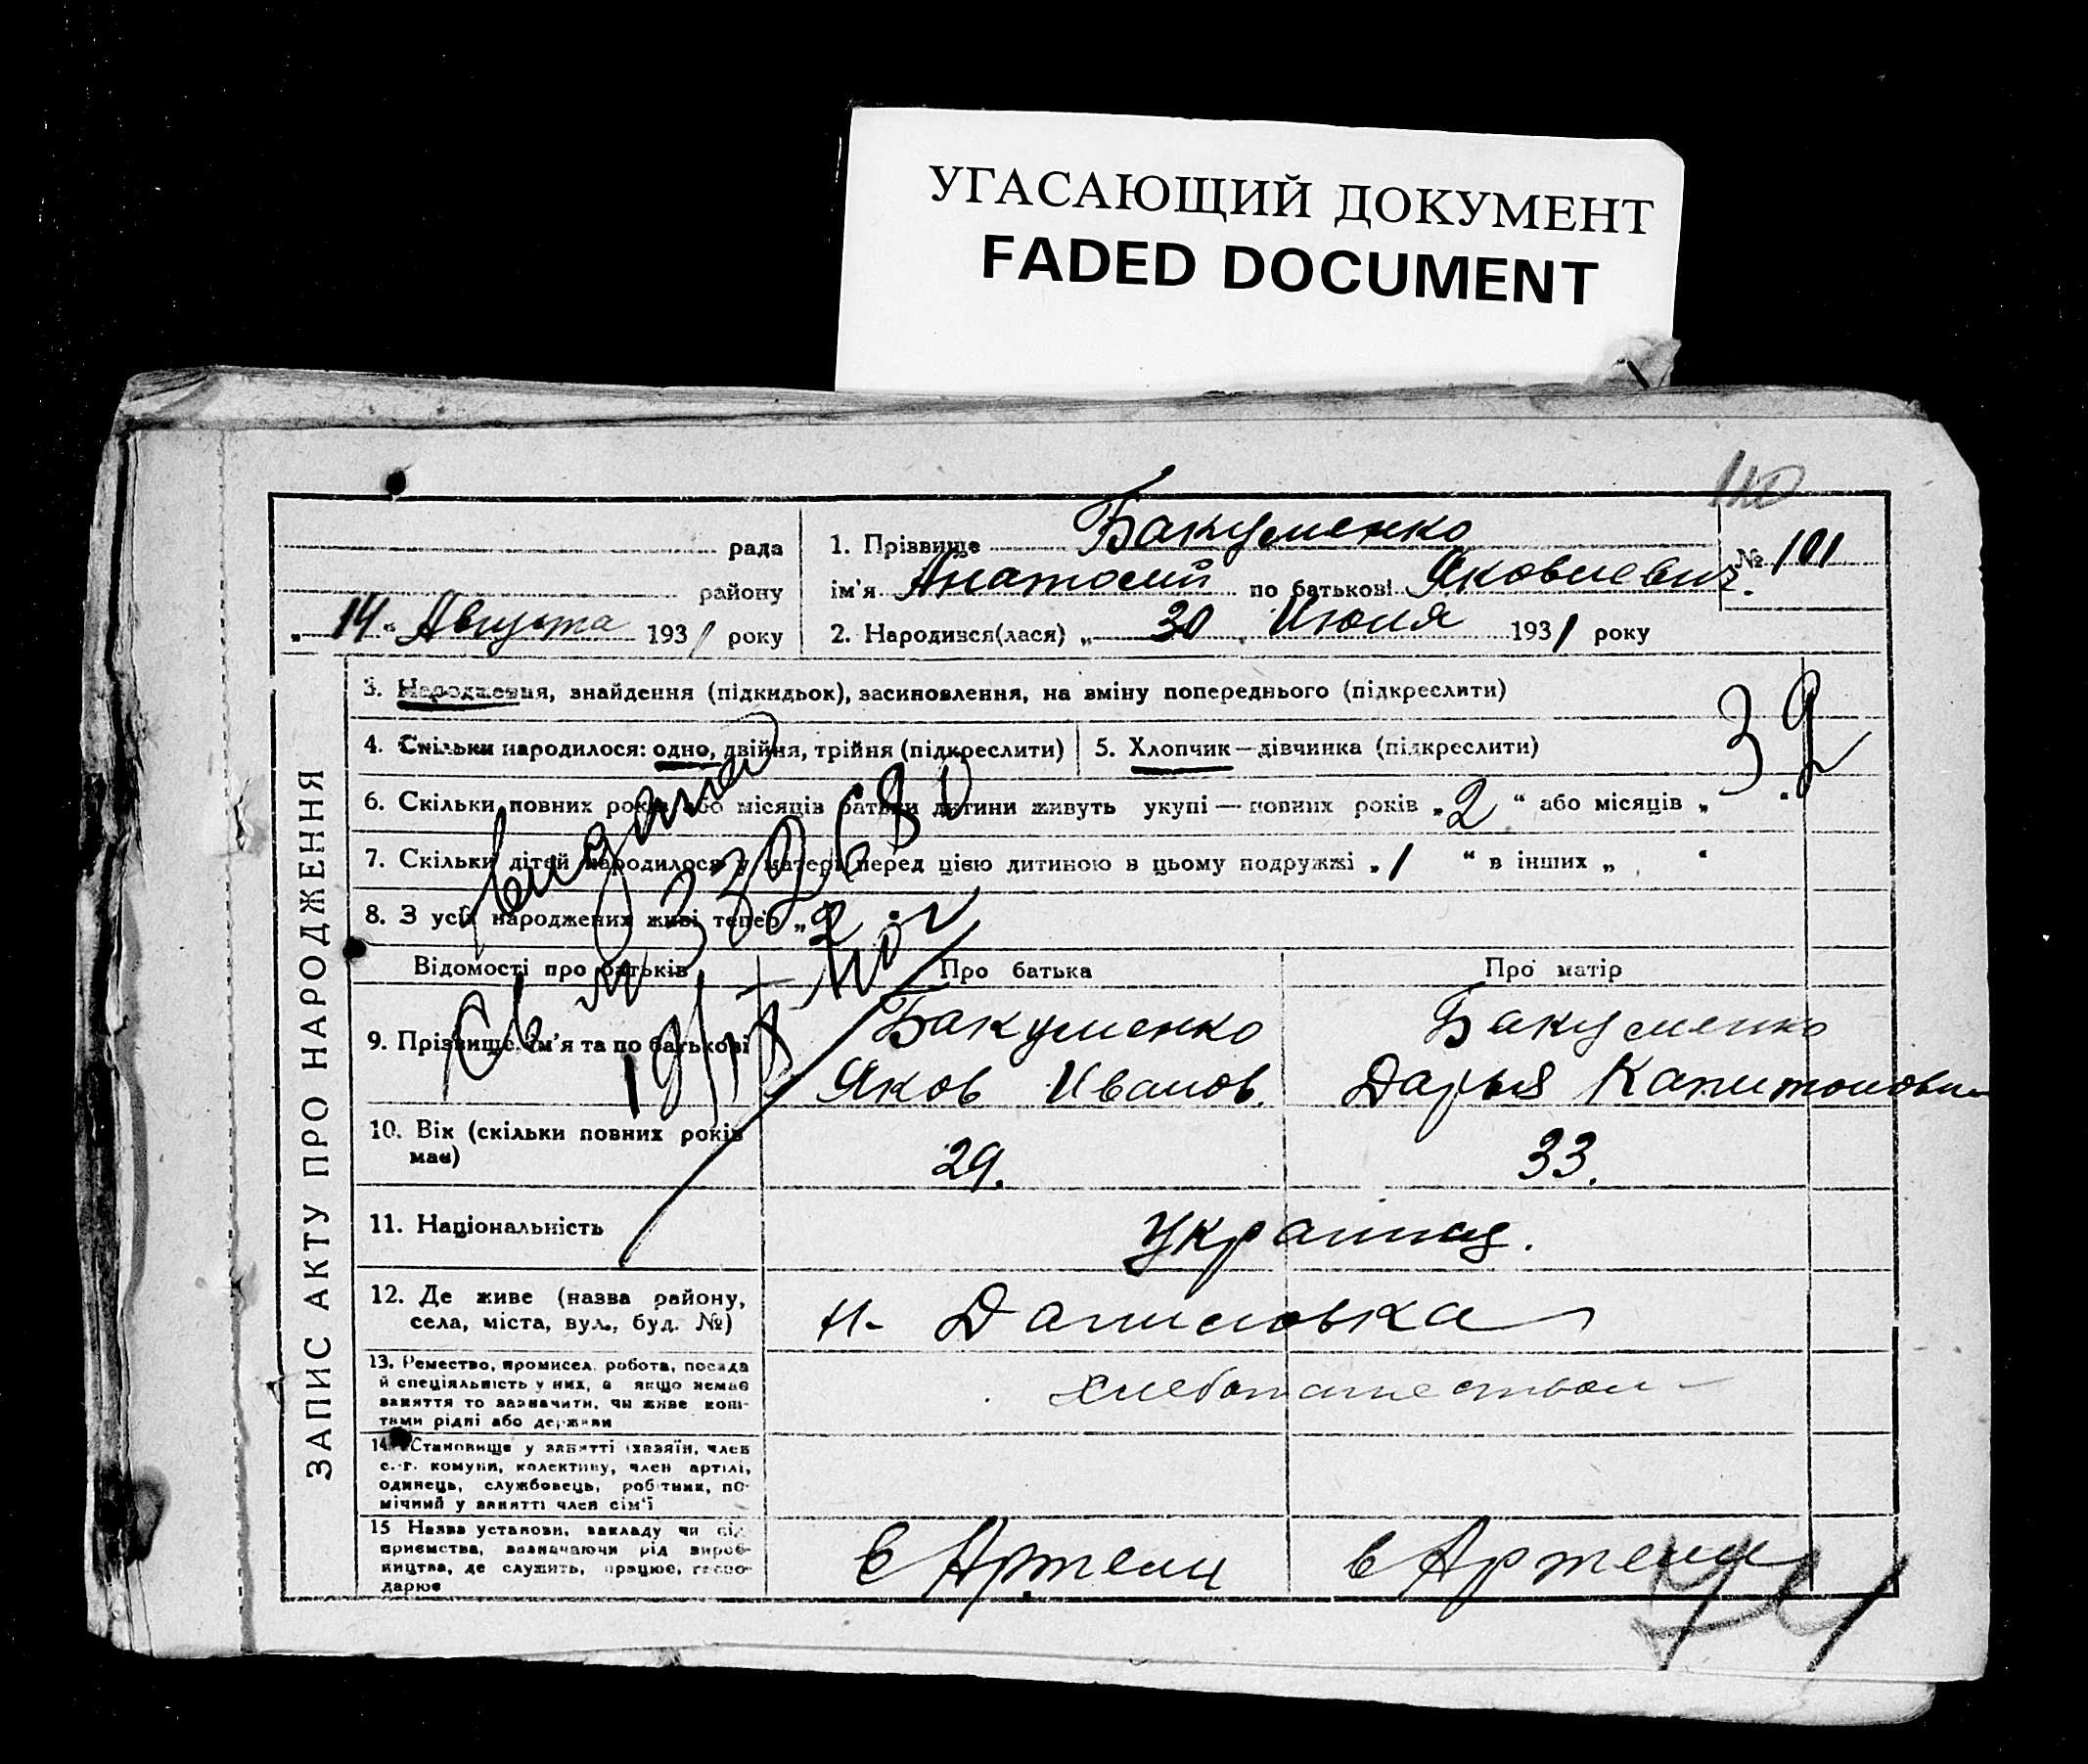 УГАСАЮЩИЙ ДОКУМЕНТ
FADED DOCUMENT
110
рада
району
„14“ Августа 1931 року
1. Прізвище Бакуменко
ім'я Анатолий по батькові Яковлевич.
2. Народився(лася) „30“ Июля 1931 року
№ 101
ЗАПИС АКТУ ПРО НАРОДЖЕННЯ
3. Народження, знайдення (підкидьок), засиновлення, на зміну попереднього (підкреслити)
4. Скільки народилося: одно, двійня, трійня (підкреслити)
5. Хлопчик — дівчинка (підкреслити)
6. Скільки повних років або місяців батьки дитини живуть укупі — повних років „2“ або місяців „ “
7. Скільки дітей народилося у матері перед цією дитиною в цьому подружжі „1“ в інших „ “
8. З усіх народжених живі тепер „2“
Відомості про батьків
Про батька
Про матір
9. Прізвище, ім'я та по батькові
Бакуменко
Яков Иванов.
Бакуменко
Дарья Капитоновн
10. Вік (скільки повних років має)
29.
33.
11. Національність
12. Де живе (назва району,
села, міста, вул., буд. №)
н. Даниловка
13. Ремество, промисел, робота, посада
й спеціяльність у них, а якщо немає
заняття то зазначити, чи живе кош-
тами рідні або держави
14. Становище у занятті (хазяїн, член
с.-г. комуни, колективу, член артілі,
одинець, службовець, робітник, по-
мічний у занятті член сім'ї
15 Назва установи, закладу чи під
приємства, зазначаючи рід вироб-
ництва, де служить, працює, госпо-
дарює
в Артели
в Артели